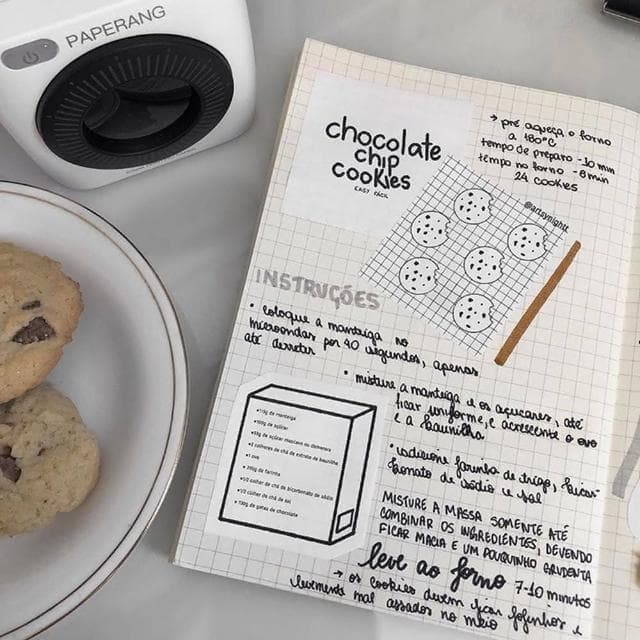 PAPERANG
chocolate
chip
cookies
EASY FÁCIL
→ pré aqueça o forno
a 180°C
tempo de preparo - 10 min
tempo no forno - 8 min
24 cookies
@artsynightt
INSTRUÇÕES
• coloque a manteiga no
microondas por 40 segundos, apenas
até derreter
• misture a manteiga e os açucares, até
ficar uniforme, e acrescente o ovo
e a baunilha
• 115g de manteiga
• 100g de açúcar
• 2 colheres de chá de extrato de baunilha
• 1 ovo
• 1/2 colher de chá de bicarbonato de sódio
• 1/2 colher de chá de sal
• 130g de gotas de chocolate
• adicione farinha de trigo, bicar-
bonato de sódio e sal
MISTURE A MASSA SOMENTE ATÉ
COMBINAR OS INGREDIENTES, DEVENDO
FICAR MACIA E UM POUQUINHO GRUDENTA
leve ao forno 7-10 minutos
→ os cookies devem ficar fofinhos e
levemente mal assados no meio